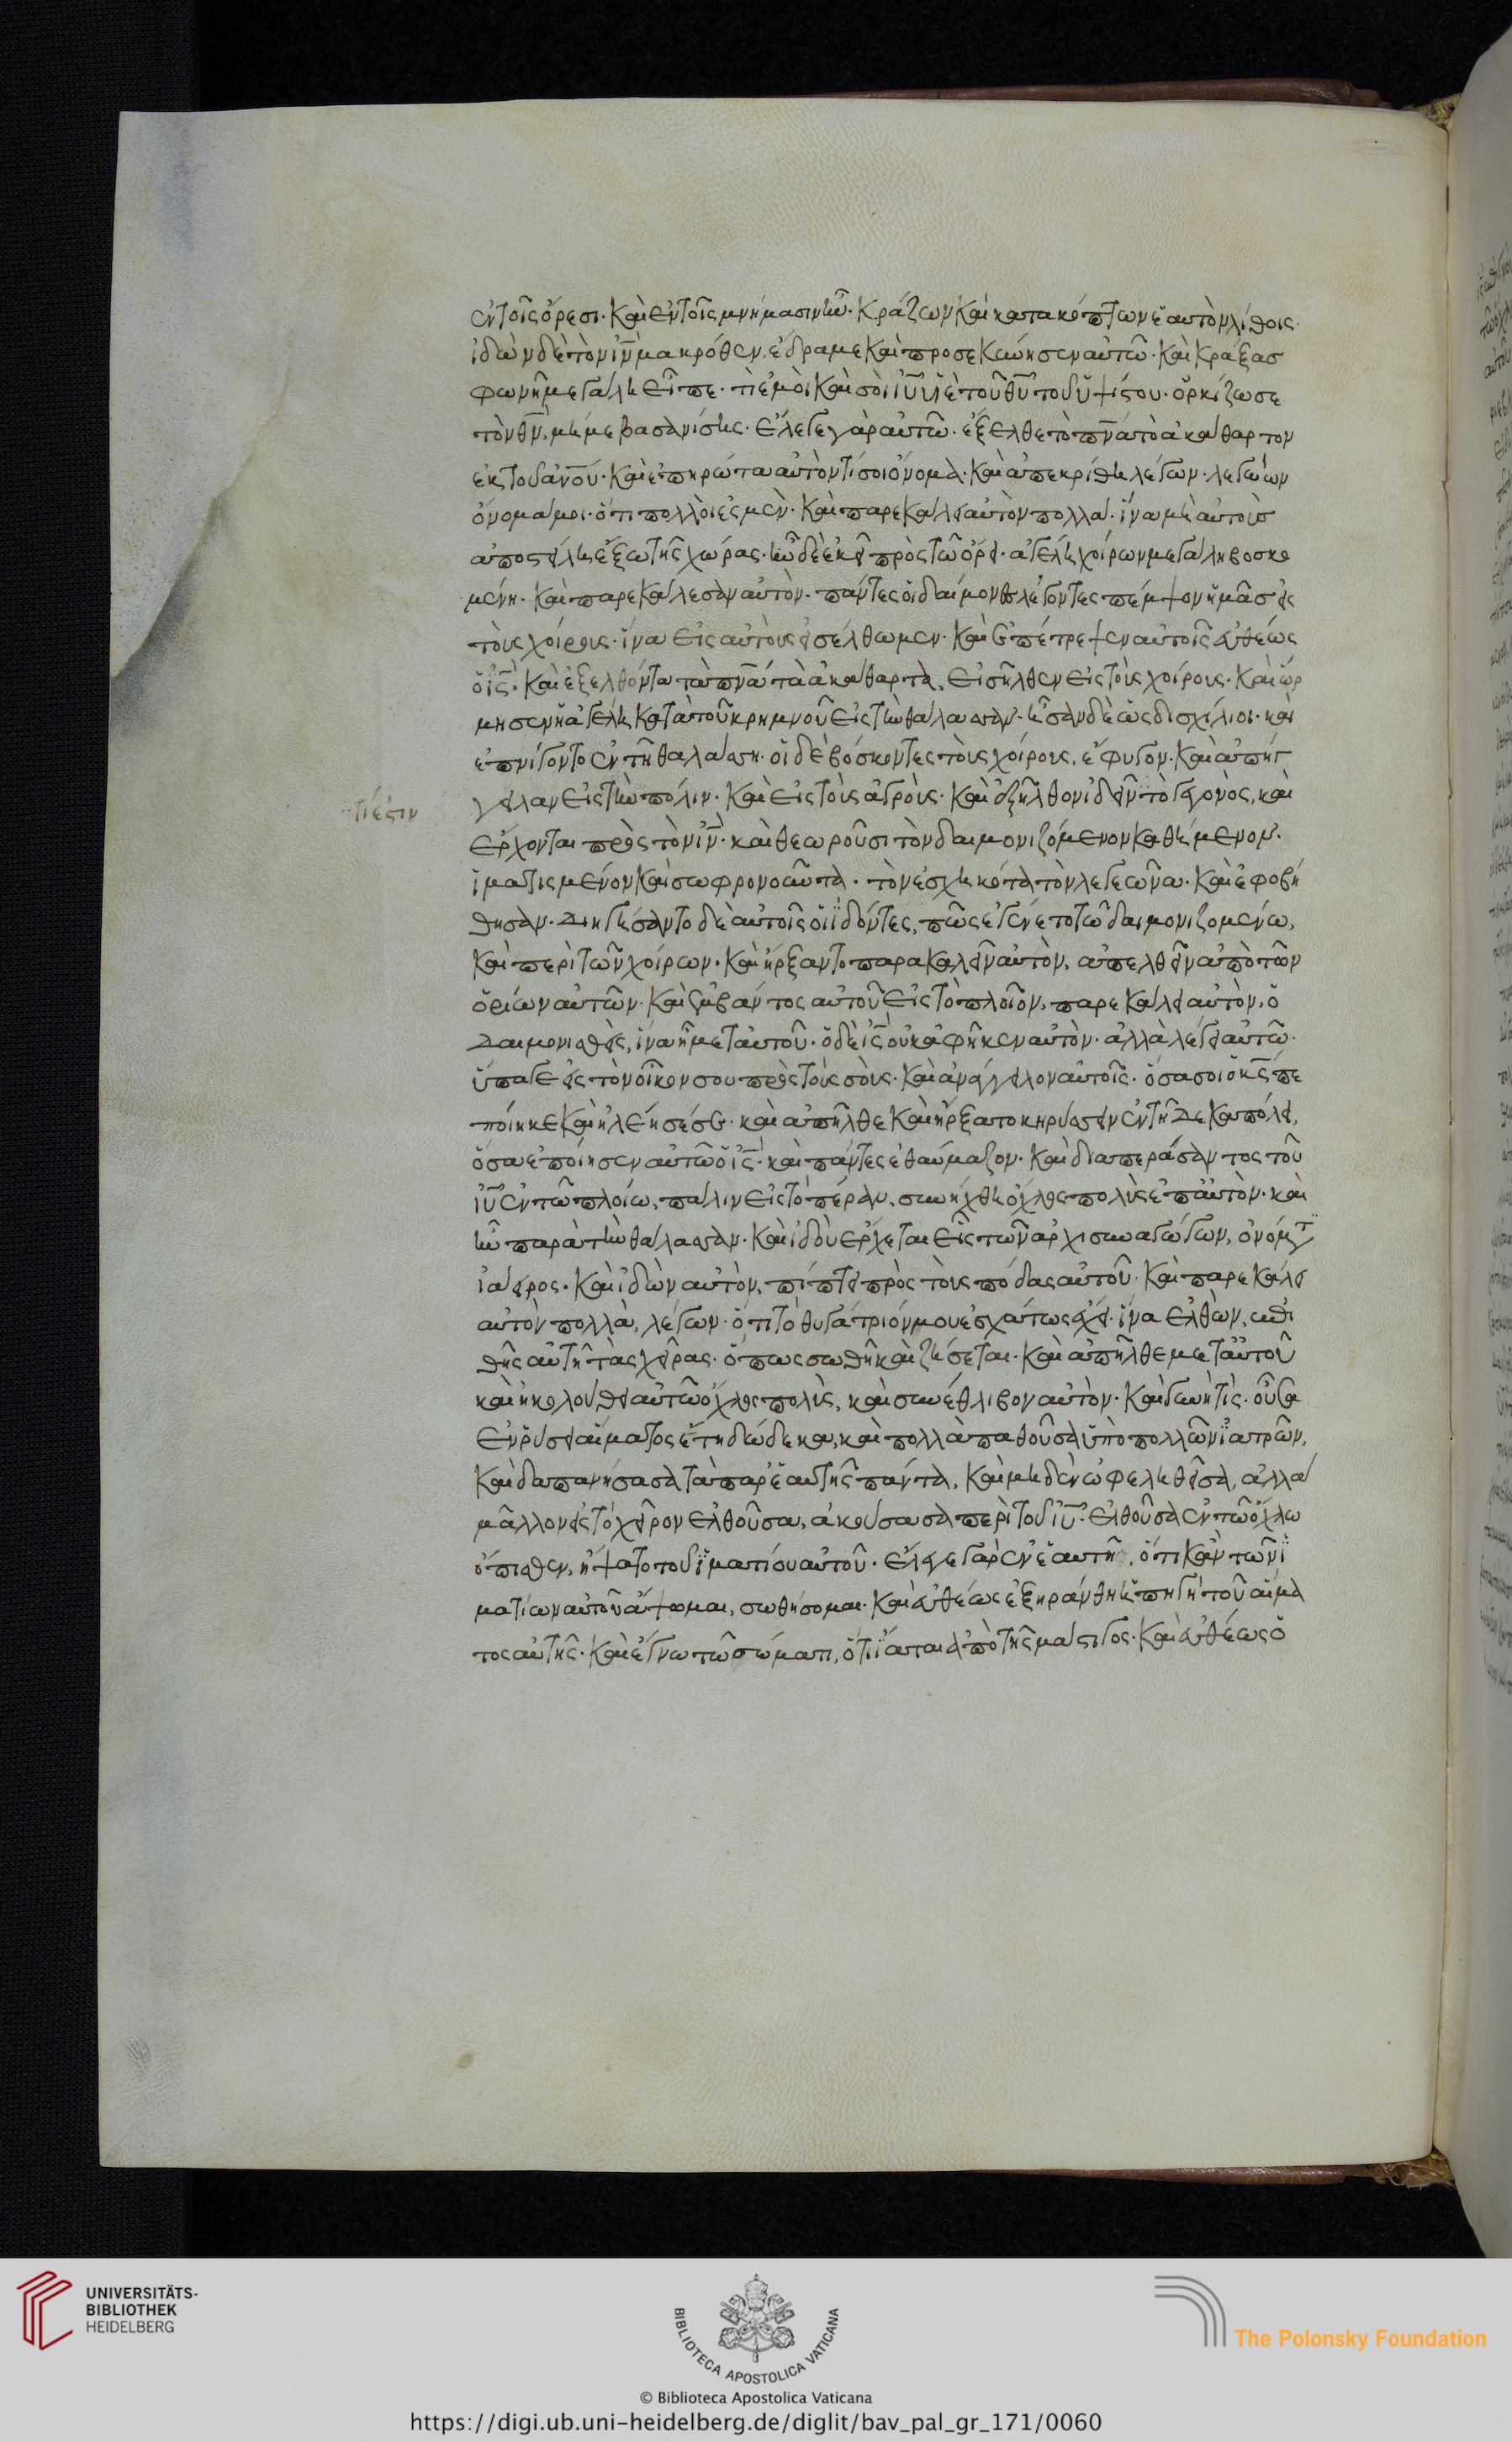 ἐν τοῖς ὄρεσι· καὶ ἐν τοῖς μνήμασιν ἦν· κράζων καὶ κατακόπτων ἑαυτὸν λίθοις·
ἰδὼν δὲ τὸν ἰν̅ μακρόθεν, ἔδραμε καὶ προσεκύνησεν αὐτῶ· καὶ κράξασ
φωνῆ μεγάλη εἶπε· τί ἐμοὶ καὶ σοὶ ἰυ̅ υἱὲ τοῦ θυ̅ τοῦ ὑψίστου· ὁρκίζω σε
τὸν θν̅, μή με βασανίσης· ἔλεγε γὰρ αὐτῶ· ἔξελθε τὸ πνα̅ τὸ ἀκάθαρτον
ἐκ τοῦ ἀνου̅· καὶ ἐπηρώτα αὐτὸν τί σοι ὄνομα· καὶ ἀπεκρίθη λέγων· λεγεὼν
ὄνομά μοι· ὅτι πολλοί ἐσμεν· καὶ παρεκάλει αὐτὸν πολλὰ· ἵνα μὴ αὐτοὺσ
ἀποστείλη ἔξω τῆς χώρας· ἦν δὲ ἐκεῖ πρὸς τῶ ὄρει· ἀγέλη χοίρων μεγάλη βοσκο
μένη· καὶ παρεκάλεσαν αὐτὸν· πάντες οἱ δαίμονες λέγοντες πέμψον ἡμᾶσ εἰς
τοὺς χοίρους· ἵνα εἰς αὐτοὺς εἰσέλθωμεν· καὶ ἐπέτρεψεν αὐτοῖς εὐθέως
ὁ ἰς̅· καὶ ἐξελθόντα τὰ πνα̅τα ἀκάθαρτα, εἰσῆλθεν εἰς τοὺς χοίρους· καὶ ὥρ
μησεν ἡ ἀγέλη κατὰ τοῦ κρημνοῦ εἰς τὴν θάλασσαν· ἦσαν δὲ ὡς δισχίλιοι· καὶ
ἐπνίγοντο ἐν τῆ θαλάσση· οἱ δὲ βόσκοντες τοὺς χοίρους, ἔφυγον· καὶ ἀπήγ
γειλαν εἰς τὴν πόλιν· καὶ εἰς τοὺς ἀγρούς· καὶ ἐξῆλθον ἰδεῖν τὸ γεγονός, καὶ
τί ἐστιν
ἔρχονται πρὸς τὸν ἰν̅· καὶ θεωροῦσι τὸν δαιμονιζόμενον καθήμενον·
ἱματισμένον καὶ σωφρονοῦντα· τὸν ἐσχηκότα τὸν λεγεῶνα· καὶ ἐφοβή
θησαν· διηγήσαντο δὲ αὐτοῖς οἱ ἰδόντες, πῶς ἐγένετο τῶ δαιμονιζομένω,
καὶ περὶ τῶν χοίρων· καὶ ἤρξαντο παρακαλεῖν αὐτὸν, ἀπελθεῖν ἀπὸ τῶν
ὁρίων αὐτῶν· καὶ ἐμβάντος αὐτοῦ εἰς τὸ πλοῖον, παρεκάλει αὐτὸν, ὁ
δαιμονισθείς, ἵνα ἦ μετ αὐτοῦ· ὁ δὲ ἰς̅ οὐκ ἀφῆκεν αὐτὸν· ἀλλὰ λέγει αὐτῶ·
ὕπαγε εἰς τὸν οἶκον σου πρὸς τοὺς σοὺς· καὶ ἀνάγγειλον αὐτοῖς· ὅσα σοι ὁ κς̅ πε
ποίηκε καὶ ἠλέησέ σε· καὶ ἀπῆλθε καὶ ἤρξατο κηρύσσειν ἐν τῆ δεκαπόλει,
ὅσα ἐποίησεν αὐτῶ ὁ ἰς̅· καὶ πάντες ἐθαύμαζον· καὶ διαπεράσαντος τοῦ
ἰυ̅ ἐν τῶ πλοίω, πάλιν εἰς τὸ πέραν, συνήχθη ὄχλος πολὺς ἐπ αὐτὸν· καὶ
ἦν παρὰ τὴν θάλασσαν· καὶ ἰδοὺ ἔρχεται εἷς τῶν ἀρχισυναγώγων, ὀνόμτ
ἰάειρος· καὶ ἰδὼν αὐτὸν, πίπτει πρὸς τοὺς πόδας αὐτοῦ· καὶ παρεκάλει
αὐτὸν πολλὰ, λέγων· ὅτι τὸ θυγάτριόν μου ἐσχάτως ἔχει· ἵνα ἐλθὼν, ἐπι
θῆς αὐτῆ τὰς χεῖρας· ὅπως σωθῆ καὶ ζήσεται· καὶ ἀπῆλθε μετ αὐτοῦ
καὶ ἠκολούθει αὐτῶ ὄχλος πολὺς, καὶ συνέθλιβον αὐτὸν· καὶ γυνή τις· οὖσα
ἐν ῥύσει αἵματος ἔτη δώδεκα, καὶ πολλὰ παθοῦσα ὑπὸ πολλῶν ἰατρῶν,
καὶ δαπανήσασα τὰ παρ ἑαυτῆς πάντα, καὶ μηδὲν ὠφεληθεῖσα, ἀλλὰ
μᾶλλον εἰς τὸ χεῖρον ἐλθοῦσα, ἀκούσασα περὶ τοῦ ἰυ̅· ἐλθοῦσα ἐν τῶ ὄχλω
ὄπισθεν, ἥψατο τοῦ ἱματίου αὐτοῦ· ἔλεγε γὰρ ἐν ἑαυτῆ, ὅτι κἂν τῶν ἱ
ματίων αὐτοῦ ἅψωμαι, σωθήσομαι· καὶ εὐθέως ἐξηράνθη ἡ πηγὴ τοῦ αἵμα
τος αὐτῆς· καὶ ἔγνω τῶ σώματι, ὅτι ἴαται ἀπὸ τῆς μάστιγος· καὶ εὐθέως ὁ
UNIVERSITÄTS-
BIBLIOTHEK
HEIDELBERG
BIBLIOTECA APOSTOLICA VATICANA
The Polonsky Foundation
© Biblioteca Apostolica Vaticana
https://digi.ub.uni-heidelberg.de/diglit/bav_pal_gr_171/0060